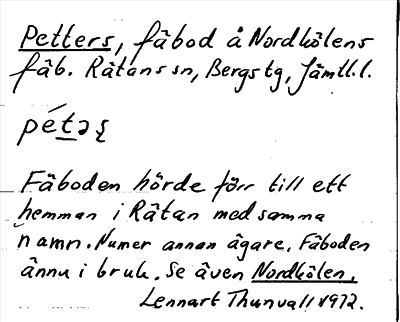 Petters, fäbod å Nordkölens
fäb. Rätans sn, Bergs tg, Jämtl. l.
pétəʂ
Fäboden hörde förr till ett
hemman i Rätan med samma
namn. Numer annan ägare. Fäboden
ännu i bruk. Se även Nordkölen.
Lennart Thunvall 1972.